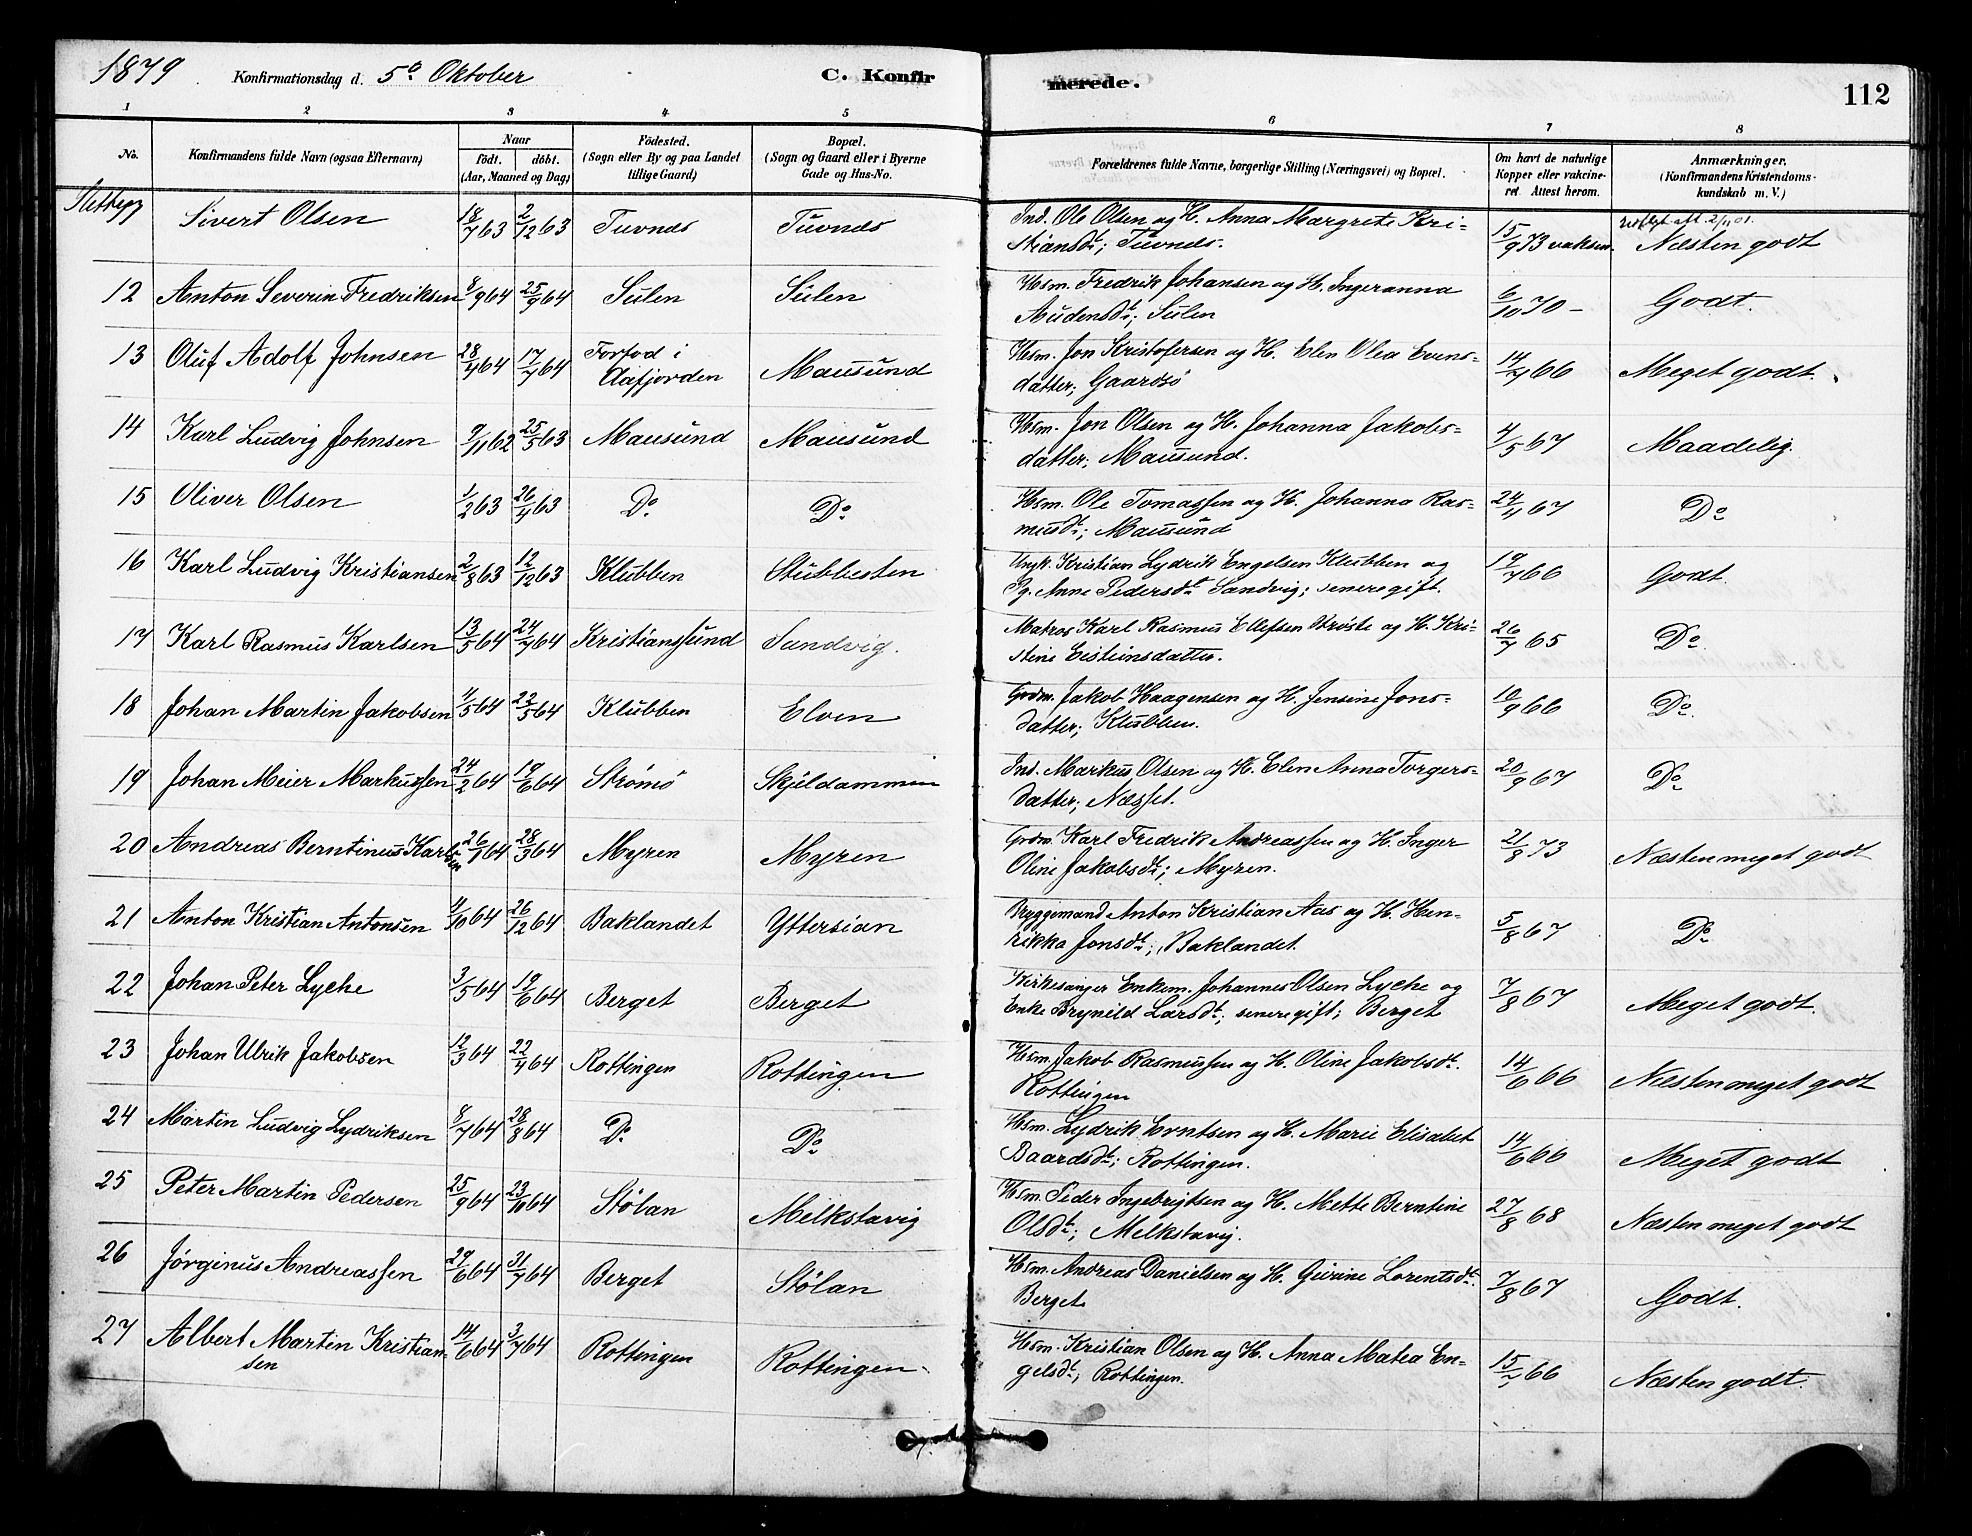 1879. Konfirmationsdag d. 5te Oktober C. Konfirmerede. 112
1 2 3 4 5 6 7 8
No. Konfirmandens fulde Navn (ogsaa Efternavn) Naar födt. döbt. (Aar, Maaned og Dag) Födested. (Sogn eller By og paa Landet tillige Gaard) Bopæl. (Sogn og Gaard eller i Byerne Gade og Hus-No. Forældrenes fulde Navne, borgerlige Stilling (Næringsvei) og Bopæl. Om havt de naturlige Kopper eller vakcineret. Attest herom. Anmærkninger. (Konfirmandens Kristendomskundskab m. V.)
Sivert Olsen 18/7 63 2/12 63 Tuvnes Tuvnes Ind. Ole Olsen og H. Anna Margrete Kri-
stiansdt; Tuvnes. 15/9 73 vaksin. Næsten godt
12 Anton Severin Fredriksen 8/9 64 25/9 64 Sulen Sulen Hsm. Fredrik Johansen og H. Ingeranna
Audensdt; Sulen 6/10 70 - Godt.
13 Oluf Adolf Johnsen 28/4 64 17/7 64 Forfod i
Aafjorden Mausund Hsm. Jon Kristofersen og H. Elen Olea Evens-
datter; Gaardsö 14/7 66 Meget godt.
14 Karl Ludvig Johnsen 9/11 62 25/5 63 Mausund Mausund Hsm. Jon Olsen og H. Johanna Jakobs-
datter; Mausund. 4/5 67 Maadelig.
15 Oliver Olsen 1/2 63 26/4 63 Do Do Hsm. Ole Tomassen og H. Johanna Ras-
musdt; Mausund 24/11 67 Do
16 Karl Ludvig Kristiansen 2/8 63 12/12 63 Klubben Stubbesten Ungk. Kristian Lydrik Engelsen Klubben og
Pg. Anne Pedersdt Sandvig; senere gift. 19/7 66 Godt.
17 Karl Rasmus Karlsen 13/5 64 24/7 64 Kristianssund Sandvig. Matros Karl Rasmus Ellefsen og H. Kri-
stine Eistensdatter. 26/7 65 Do.
18 Johan Martin Jakobsen 11/5 64 22/5 64 Klubben Elven Grdm. Jakob Haagensen og H. Jensine Jons-
datter; Klubben. 10/9 66 Do.
19 Johan Meier Markussen 24/2 64 19/6 64 Strömö Skjeldammen Ind. Markus Olsen og H. Elen Anna Torgers-
datter; Næsset. 20/9 67 Do
20 Andreas Berntinus Karl-
sen 26/1 64 28/3 64 Myren Myren Grdm. Karl Fredrik Andreassen og H. Inger
Oline Jakobsdt; Myren. 21/8 73 Næsten meget godt
21 Anton Kristian Antonsen 11/10 64 26/12 64 Baklandet Yttersian Bryggemand Anton Kristian Aas og H. Hen-
rikka Jonsdt; Baklandet. 5/8 67 Do
22 Johan Peter Lyche 3/5 64 19/6 64 Berget Berget Kirkesanger Enkem. Johannes Olsen Lyche og
Enke Brynild Larsdt; senere gift; Berget 7/8 67 Meget godt.
23 Johan Ulrik Jakobsen 12/3 64 22/4 64 Rottingen Rottingen Hsm. Jakob Rasmussen og H. Oline Jakobsdt.
Rottingen 14/6 66 Næsten meget godt
24 Martin Ludvig Lydriksen 8/7 64 28/8 64 Do Do Hsm. Lydrik Erntsen og H. Marie Elisabet
Baardsdt; Rottingen. 14/6 66 Meget godt
25 Peter Martin Pedersen 25/9 64 23/10 64 Stölan Melkstavig Hsm. Peder Ingebrigtsen og H. Mette Berntine
Olsdt; Melkstavig. 27/8 68 Næsten meget godt
26 Jörginus Andreassen 29/6 64 31/7 64 Berget Stölan Hsm. Andreas Danielsen og H. Gurine Lorentsdt.
Berget 7/8 67 Godt.
27 Albert Martin Kristian-
sen 14/6 64 3/7 64 Rottingen Rottingen Hsm. Kristian Olsen og H. Anna Matea En-
gelsdt; Rottingen. 15/7 66 Næsten godt.